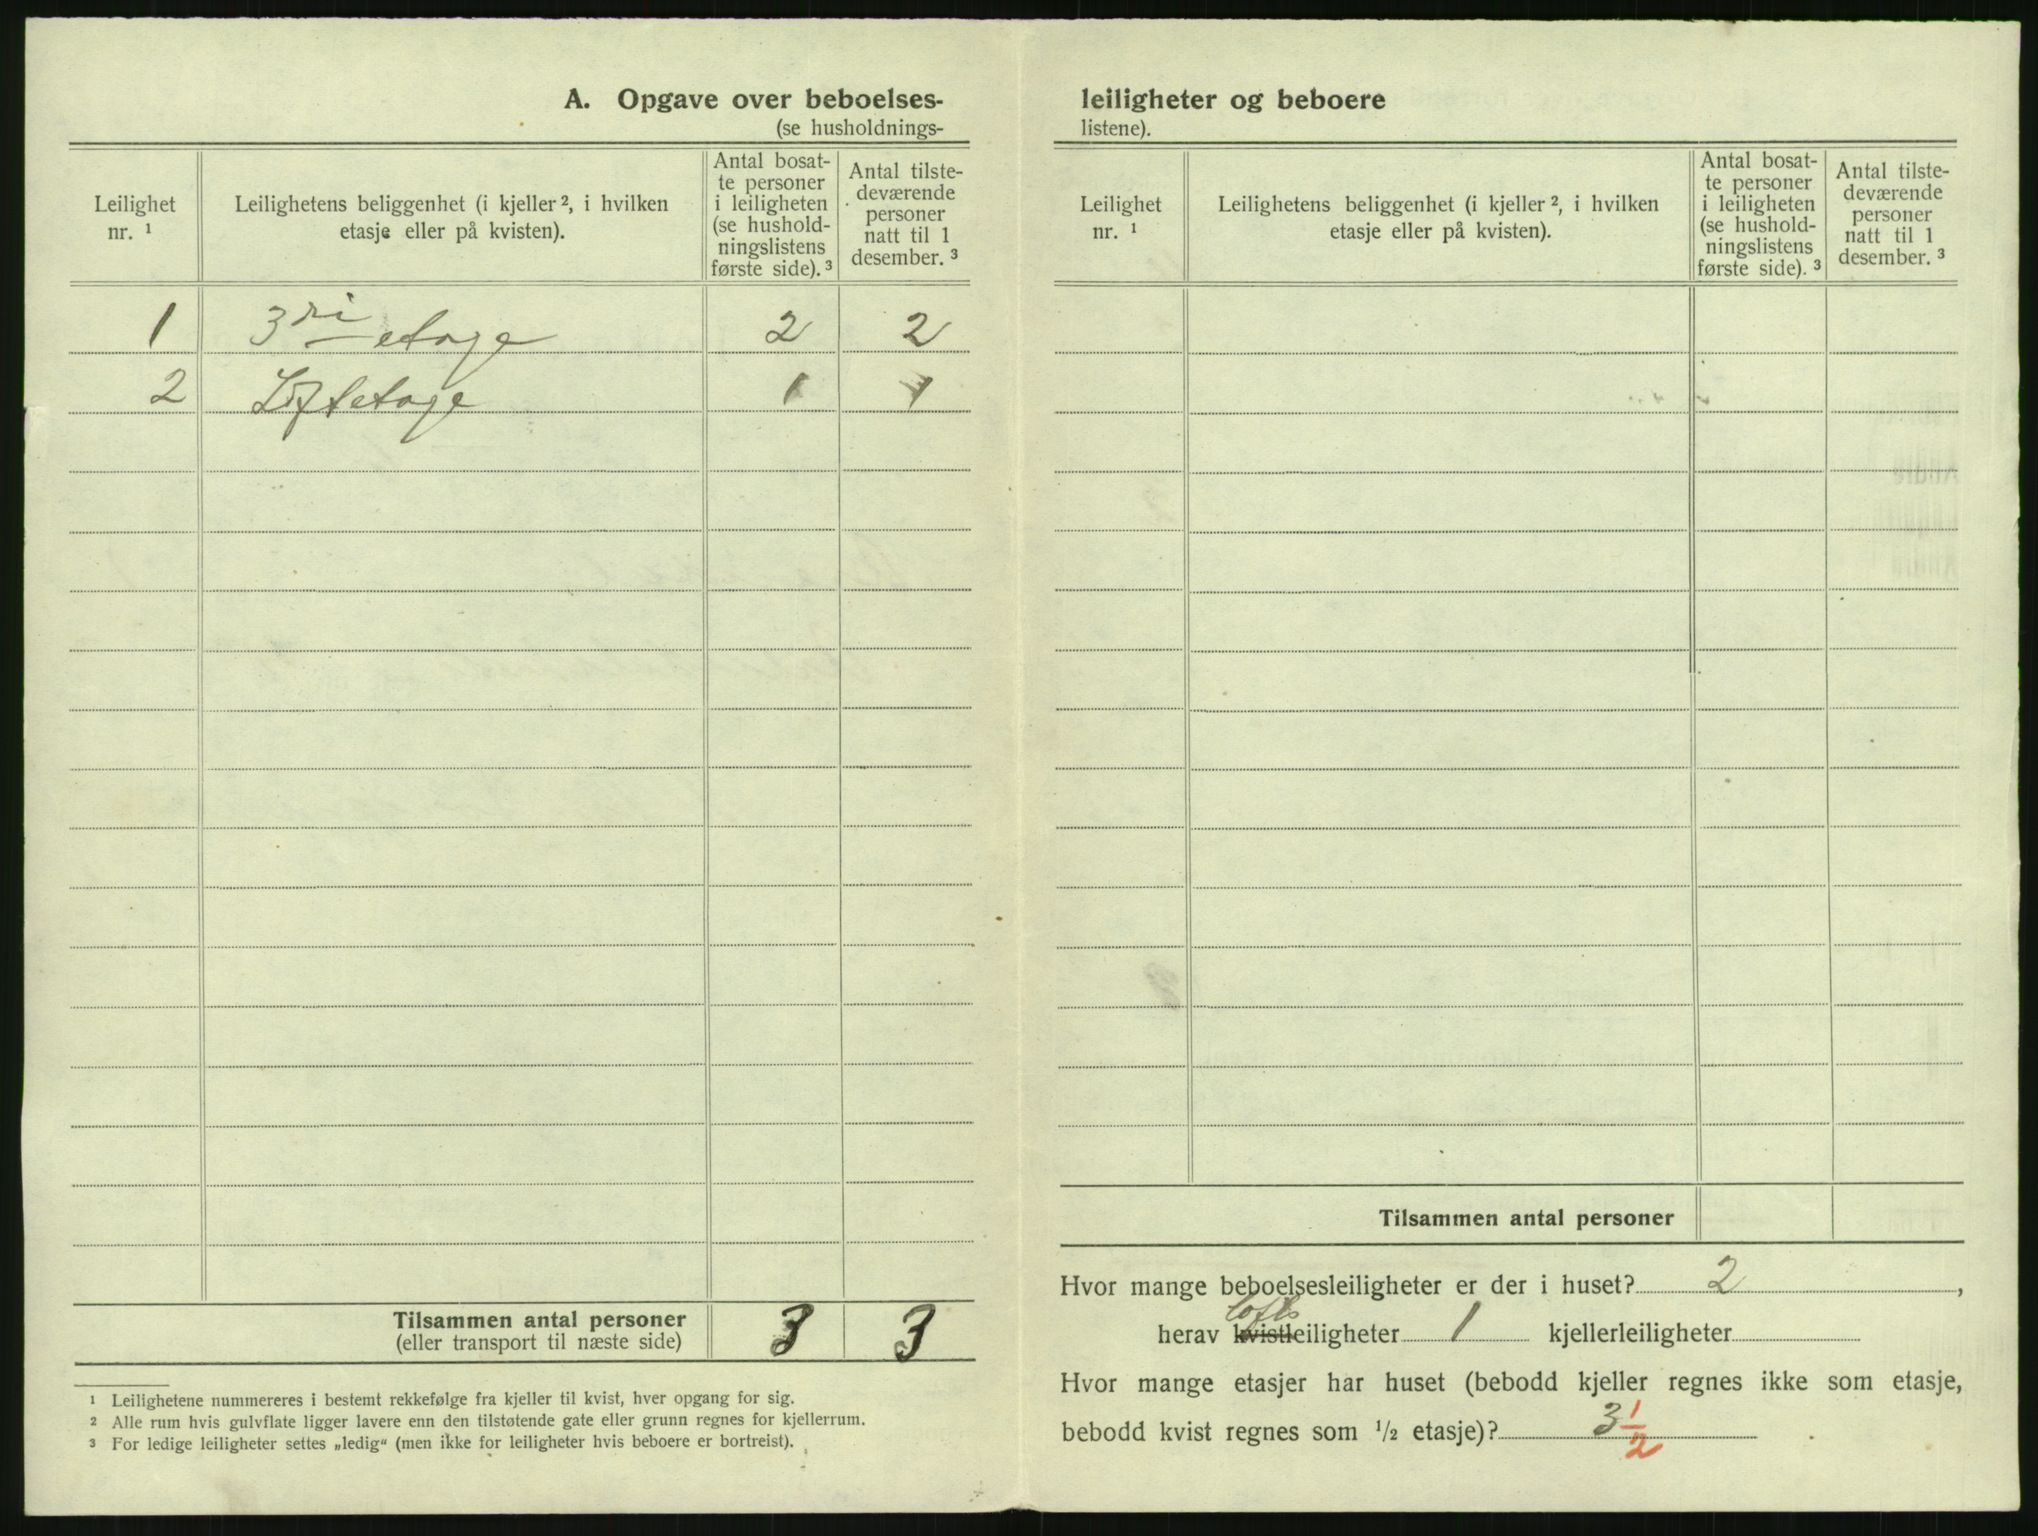 A. Opgave over beboelses-
(se husholdnings-
Leilighet
nr. ¹
Leilighetens beliggenhet (i kjeller ², i hvilken
etasje eller på kvisten).
Antal bosat-
te personer
i leiligheten
(se hushold-
ningslistens
første side). ³
Antal tilste-
deværende
personer
natt til 1
desember. ³
1 3ri etage 2 2
2 Loftetage 1 1
Tilsammen antal personer 3 3
(eller transport til næste side)
¹ Leilighetene nummereres i bestemt rekkefølge fra kjeller til kvist, hver opgang for sig.
² Alle rum hvis gulvflate ligger lavere enn den tilstøtende gate eller grunn regnes for kjellerrum.
³ For ledige leiligheter settes „ledig“ (men ikke for leiligheter hvis beboere er bortreist).
leiligheter og beboere
listene).
Leilighet
nr. ¹
Leilighetens beliggenhet (i kjeller ², i hvilken
etasje eller på kvisten).
Antal bosat-
te personer
i leiligheten
(se hushold-
ningslistens
første side). ³
Antal tilste-
deværende
personer
natt til 1
desember. ³
Tilsammen antal personer
Hvor mange beboelsesleiligheter er der i huset? 2 ,
lofts
herav kvistleiligheter 1 kjellerleiligheter
Hvor mange etasjer har huset (bebodd kjeller regnes ikke som etasje,
bebodd kvist regnes som ½ etasje)? 3 ½